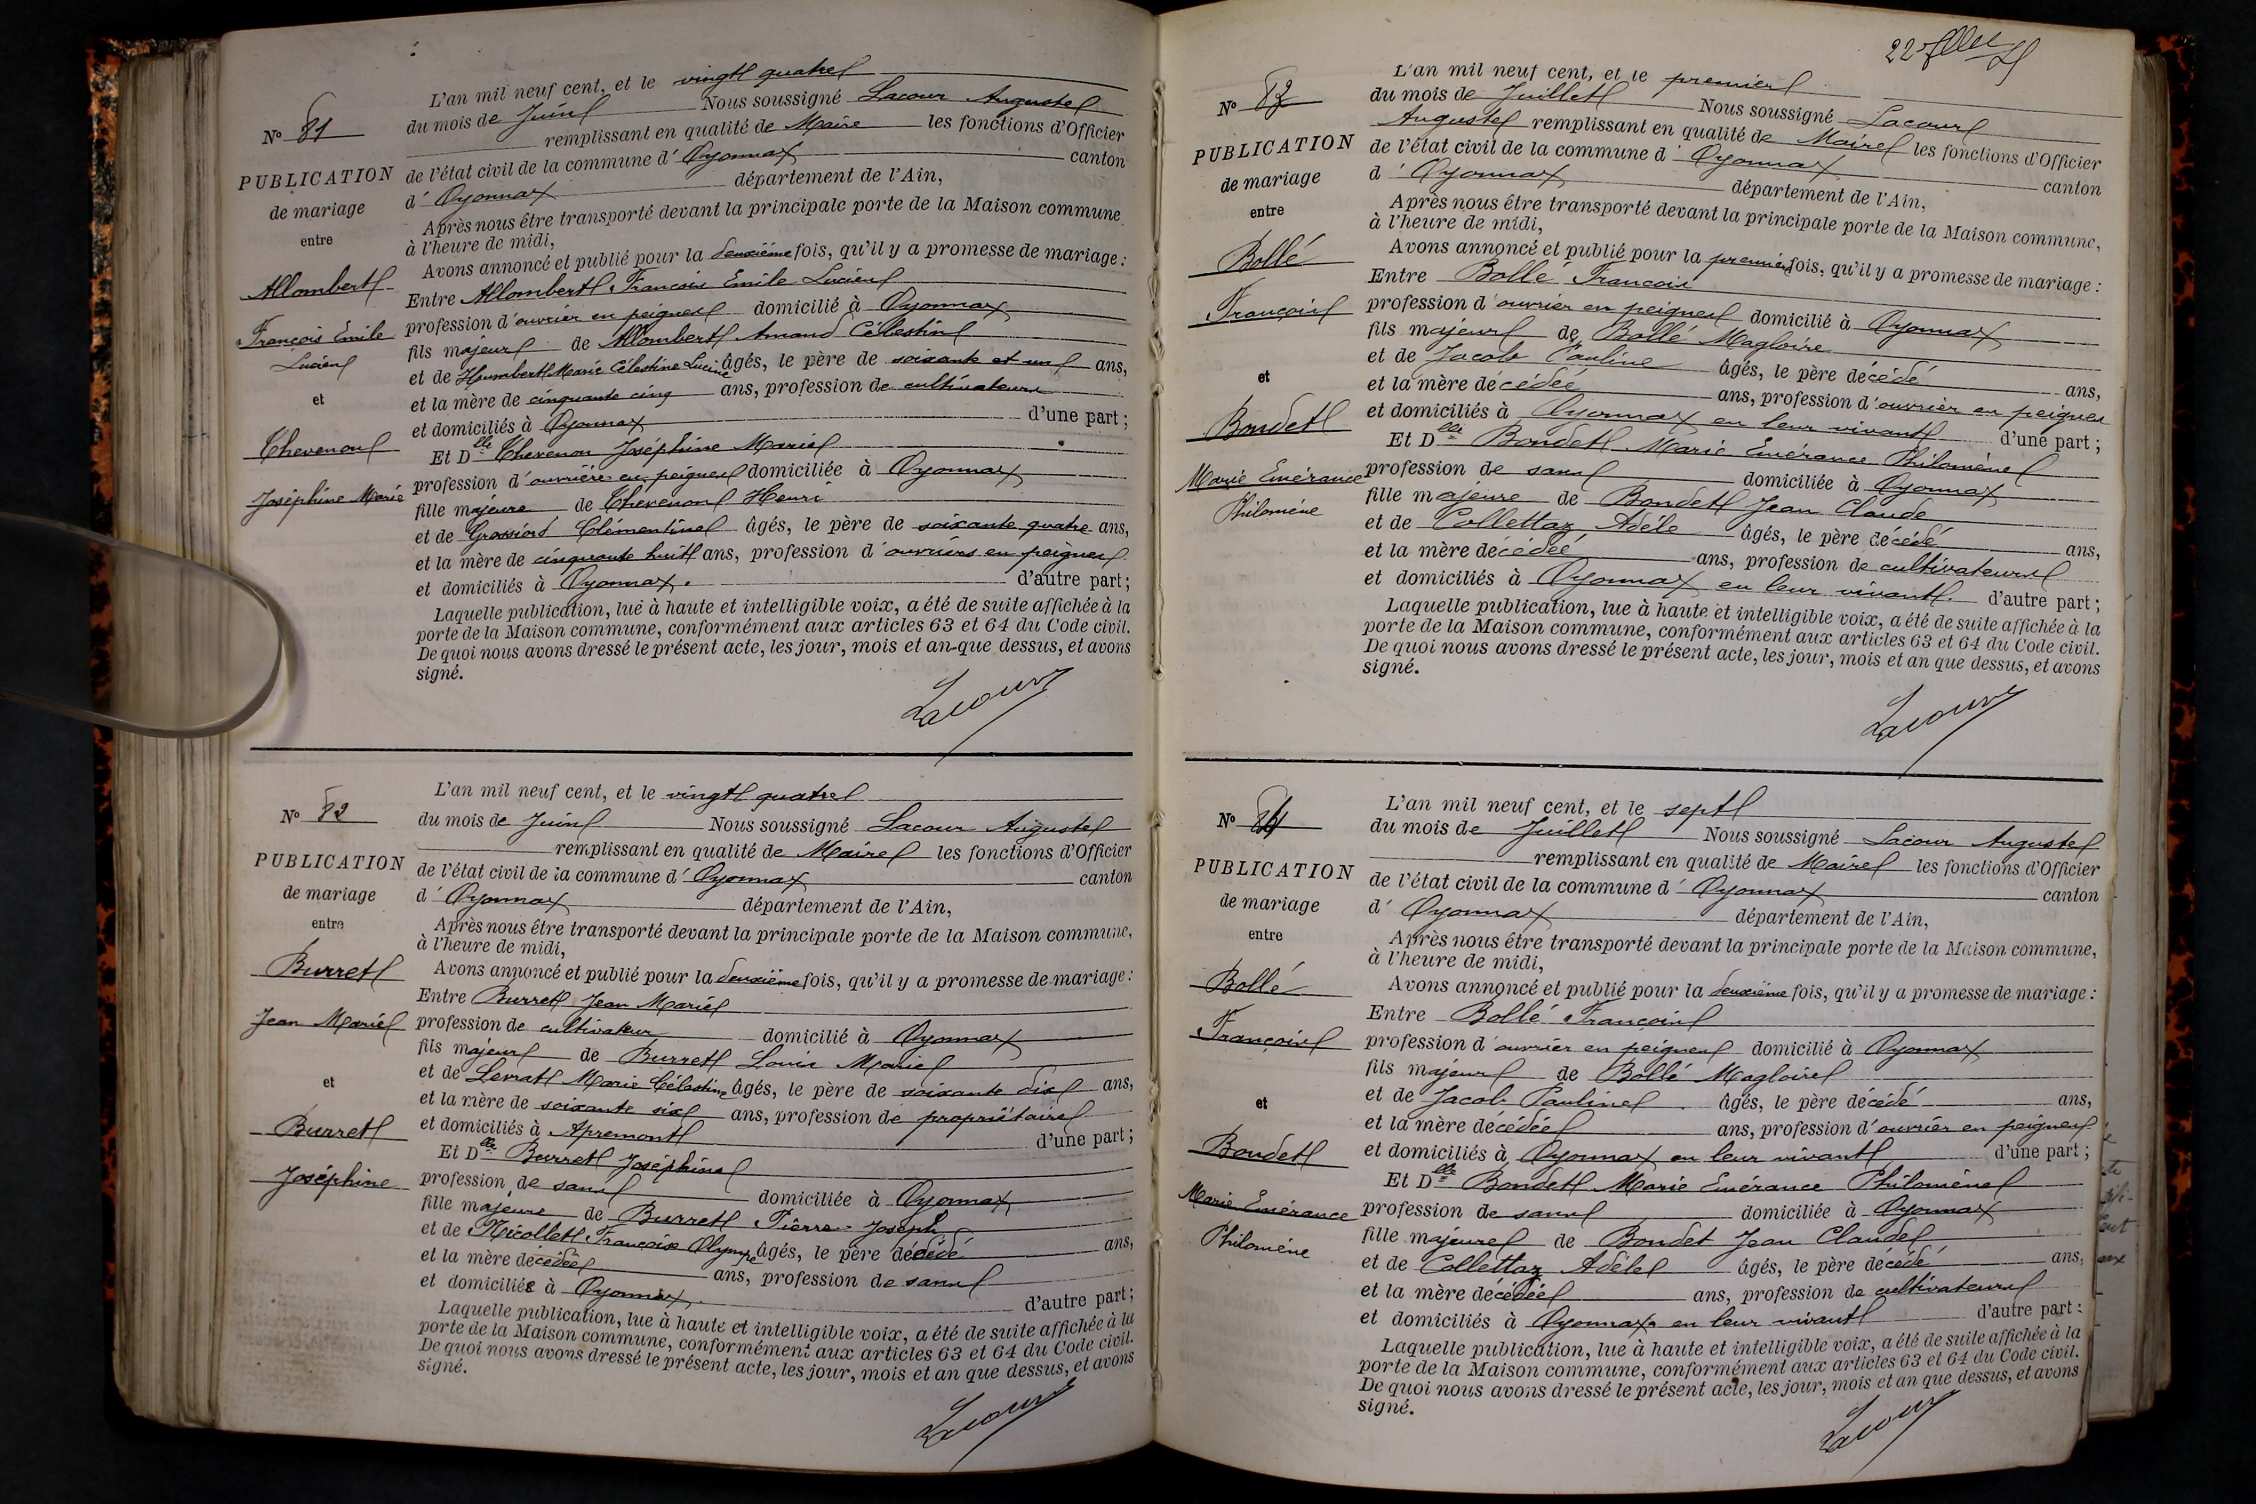 N° 81
PUBLICATION
de mariage
entre
Allombert
François Emile
Lucien
et
Chevenon
Joséphine Marie
L'an mil neuf cent, et le vingt quatre
du mois de Juin Nous soussigné Lacour Auguste
remplissant en qualité de Maire les fonctions d'Officier
de l'état civil de la commune d'Oyonnax canton
d'Oyonnax département de l'Ain,
Après nous être transporté devant la principale porte de la Maison commune
à l'heure de midi,
Avons annoncé et publié pour la deuxième fois, qu'il y a promesse de mariage :
Entre Allombert François Emile Lucien
profession d'ouvrier en peignes domicilié à Oyonnax
fils majeur de Allombert Amand Célestin
et de Humbert Marie Célestine Lucine âgés, le père de soixante et un ans,
et la mère de cinquante cinq ans, profession de cultivateurs
et domiciliés à Oyonnax d'une part ;
Et Dlle Chevenon Joséphine Marie
profession d'ouvrière en peignes domiciliée à Oyonnax
fille majeure de Chevenon Henri
et de Grossiord Clémentine âgés, le père de soixante quatre ans,
et la mère de cinquante huit ans, profession d'ouvriers en peignes
et domiciliés à Oyonnax. d'autre part ;
Laquelle publication, lue à haute et intelligible voix, a été de suite affichée à la
porte de la Maison commune, conformément aux articles 63 et 64 du Code civil.
De quoi nous avons dressé le présent acte, les jour, mois et an que dessus, et avons
signé.
Lacour
N° 82
PUBLICATION
de mariage
entre
Burret
Jean Marie
et
Burret
Joséphine
L'an mil neuf cent, et le vingt quatre
du mois de Juin Nous soussigné Lacour Auguste
remplissant en qualité de Maire les fonctions d'Officier
de l'état civil de la commune d'Oyonnax canton
d'Oyonnax département de l'Ain,
Après nous être transporté devant la principale porte de la Maison commune,
à l'heure de midi,
Avons annoncé et publié pour la deuxième fois, qu'il y a promesse de mariage :
Entre Burret Jean Marie
profession de cultivateur domicilié à Oyonnax
fils majeur de Burret Louis Marie
et de Levrat Marie Célestine âgés, le père de soixante dix ans,
et la mère de soixante six ans, profession de propriétaire
et domiciliés à Apremont d'une part ;
Et Dlle Burret Joséphine
profession de sans domiciliée à Oyonnax
fille majeure de Burret Pierre-Joseph
et de Nicollet Françoise Olympe âgés, le père décédé ans,
et la mère décédée ans, profession de sans
et domiciliés à Oyonnax. d'autre part ;
Laquelle publication, lue à haute et intelligible voix, a été de suite affichée à la
porte de la Maison commune, conformément aux articles 63 et 64 du Code civil.
De quoi nous avons dressé le présent acte, les jour, mois et an que dessus, et avons
signé.
Lacour
22
N° 83
PUBLICATION
de mariage
entre
Bollé
François
et
Bondet
Marie Emérance
Philomène
L'an mil neuf cent, et le premier
du mois de Juillet Nous soussigné Lacour
Auguste remplissant en qualité de Maire les fonctions d'Officier
de l'état civil de la commune d'Oyonnax canton
d'Oyonnax département de l'Ain,
Après nous être transporté devant la principale porte de la Maison commune,
à l'heure de midi,
Avons annoncé et publié pour la première fois, qu'il y a promesse de mariage :
Entre Bollé François
profession d'ouvrier en peignes domicilié à Oyonnax
fils majeur de Bollé Magloire
et de Jacob Pauline âgés, le père décédé ans,
et la mère décédée ans, profession d'ouvrier en peignes
et domiciliés à Oyonnax en leur vivant d'une part ;
Et Dlle Bondet Marie Emérance Philomène
profession de sans domiciliée à Oyonnax
fille majeure de Bondet Jean Claude
et de Collettaz Adèle âgés, le père décédé ans,
et la mère décédée ans, profession de cultivateurs
et domiciliés à Oyonnax en leur vivant. d'autre part ;
Laquelle publication, lue à haute et intelligible voix, a été de suite affichée à la
porte de la Maison commune, conformément aux articles 63 et 64 du Code civil.
De quoi nous avons dressé le présent acte, les jour, mois et an que dessus, et avons
signé.
Lacour
N° 84
PUBLICATION
de mariage
entre
Bollé
François
et
Bondet
Marie Emérance
Philomène
L'an mil neuf cent, et le sept
du mois de Juillet Nous soussigné Lacour Auguste
remplissant en qualité de Maire les fonctions d'Officier
de l'état civil de la commune d'Oyonnax canton
d'Oyonnax département de l'Ain,
Après nous être transporté devant la principale porte de la Maison commune,
à l'heure de midi,
Avons annoncé et publié pour la deuxième fois, qu'il y a promesse de mariage :
Entre Bollé François
profession d'ouvrier en peignes domicilié à Oyonnax
fils majeur de Bollé Magloire
et de Jacob Pauline âgés, le père décédé ans,
et la mère décédée ans, profession d'ouvrier en peignes
et domiciliés à Oyonnax en leur vivant d'une part ;
Et Dlle Bondet Marie Emérance Philomène
profession de sans domiciliée à Oyonnax
fille majeure de Bondet Jean Claude
et de Collettaz Adèle âgés, le père décédé ans,
et la mère décédée ans, profession de cultivateurs
et domiciliés à Oyonnax. en leur vivant d'autre part :
Laquelle publication, lue à haute et intelligible voix, a été de suite affichée à la
porte de la Maison commune, conformément aux articles 63 et 64 du Code civil.
De quoi nous avons dressé le présent acte, les jour, mois et an que dessus, et avons
signé.
Lacour